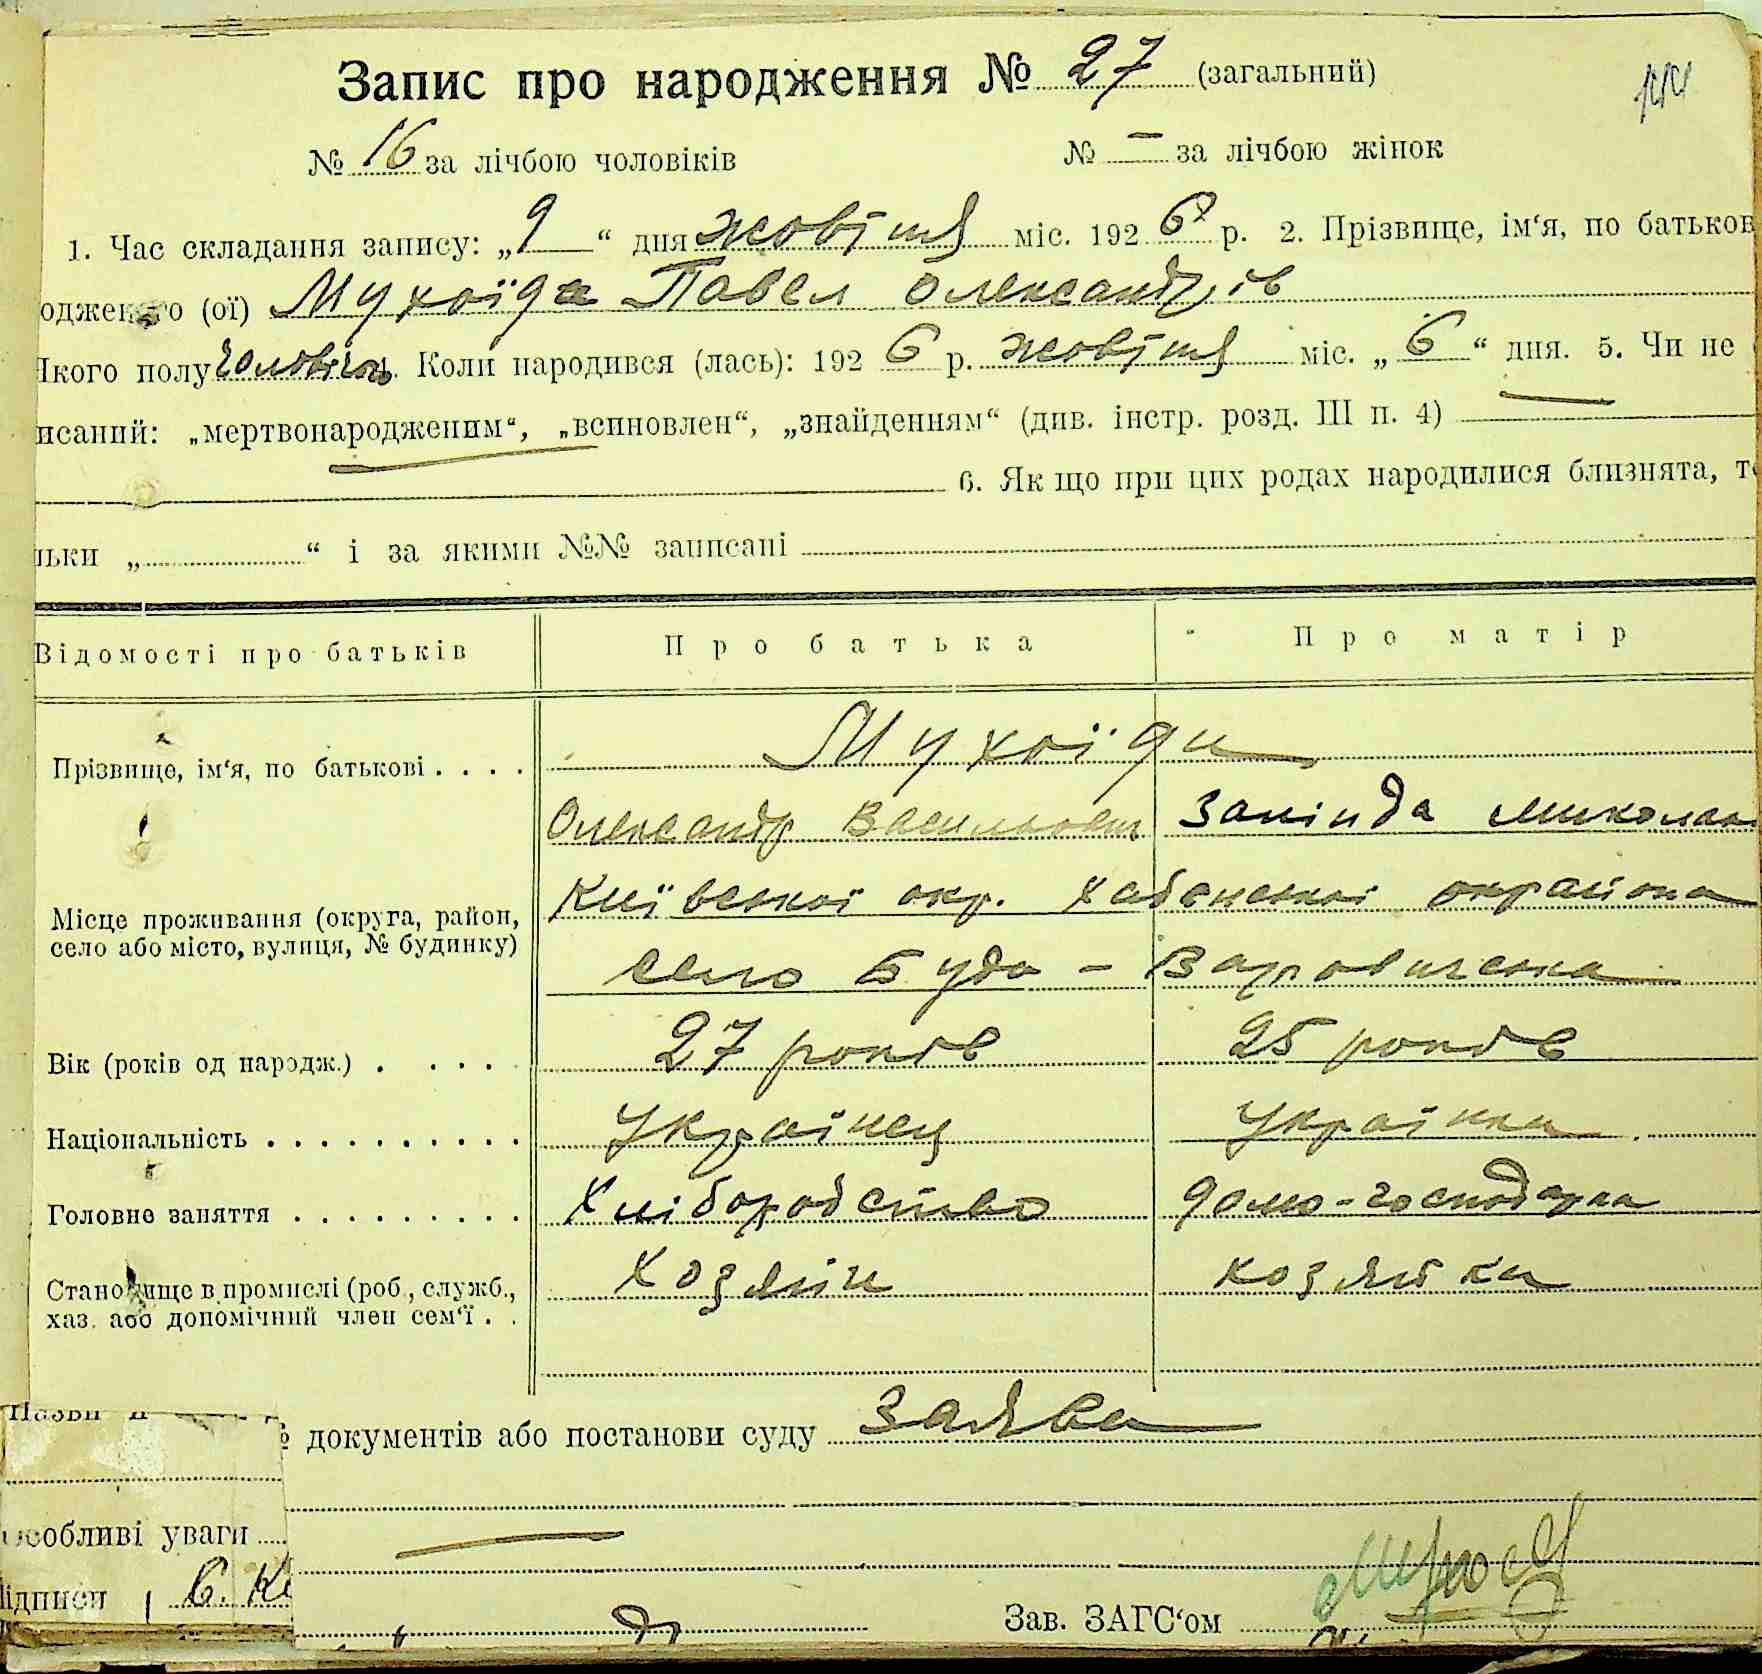 Запис про народження № 27 (загальний)
№ 16 за лічбою чоловіків № — за лічбою жінок
1. Час складання запису: „9“ дня жовтня міс. 1926 р. 2. Прізвище, ім‘я, по батьков
одженого (ої) Мухоїда Павел Олександрів
Якого полу чоловічог. Коли народився (лась): 1926 р. жовтня міс. „6“ дня. 5. Чи не
исаний: „мертвонародженим“, „всиновлен“, „знайденням“ (див. інстр. розд. III п. 4)
6. Як що при цих родах народилися близнята, т
льки „ “ і за якими №№ записані
Відомості про батьків Про батька Про матір
Мухоїди
Прізвище, ім‘я, по батькові . . . .
Олександр Васильович Зинаїда Микола
Київської окр. Хабенської окрайона
Місце проживання (округа, район,
село або місто, вулиця, № будинку)
село Буда - Варовичська
Вік (років од народж.) . . . . . 27 років 25 років
Національність . . . . . . . . . . Українец Українка
Головне заняття . . . . . . . . . Хліборобство домо-господарка
Становище в промислі (роб., служб.,
хаз. або допомічний член сем‘ї . . Хозяїн хозяйка
Назви
документів або постанови суду заява
Особливі уваги
Підписи
Зав. ЗАГС‘ом